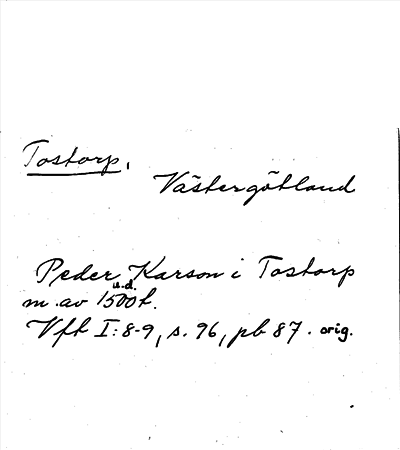 Tostorp,
Västergötland
Peder Karson i Tostorp
u.d.
m av 1500t.
Vft I:8-9, s. 96, pb 87. orig.